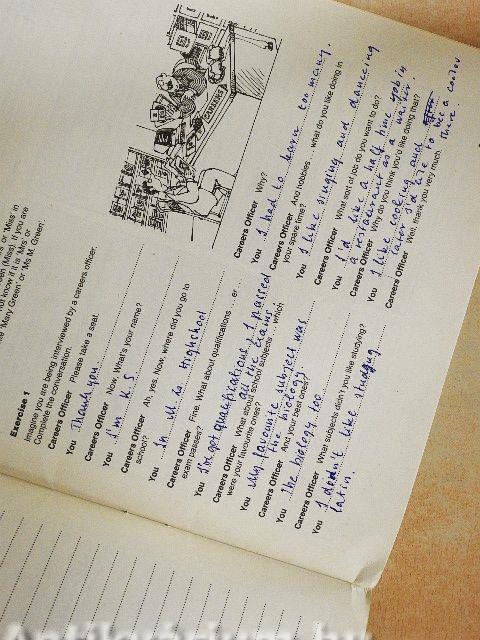 or 'Miss' in
(Miss). If you are
not know if it is 'Mrs' or
'Mary Green' or 'Ms M. Green'.
Exercise 1
Imagine you are being interviewed by a careers officer.
Complete the conversation.
Careers Officer Please take a seat.
You Thank you.
Careers Officer Now. What's your name?
You I'm K.S.
Careers Officer Ah, yes. Now, where did you go to
school?
You In
Highshool
Careers Officer Fine. What about qualifications ... er
exam passes?
You I've got qualifications, I passed
all the exams.
Careers Officer What about school subjects ... which
were your favourite ones?
You My favourite subject was
the biology
Careers Officer And your best ones?
You The biology too.
Careers Officer What subjects didn't you like studying?
You I didn't like
latin.
CAREERS
Careers Officer Why?
You I had to learn too many.
Careers Officer And hobbies ... what do you like doing in
your spare time?
You I like singing and danceing
Careers Officer What sort of job do you want to do?
You I'd like a half time job in
a restaurant as a waiter.
Careers Officer Why do you think you'd like doing that?
You I like cooking and
later I'd like to be a
there.
Careers Officer Well, thank you very much.